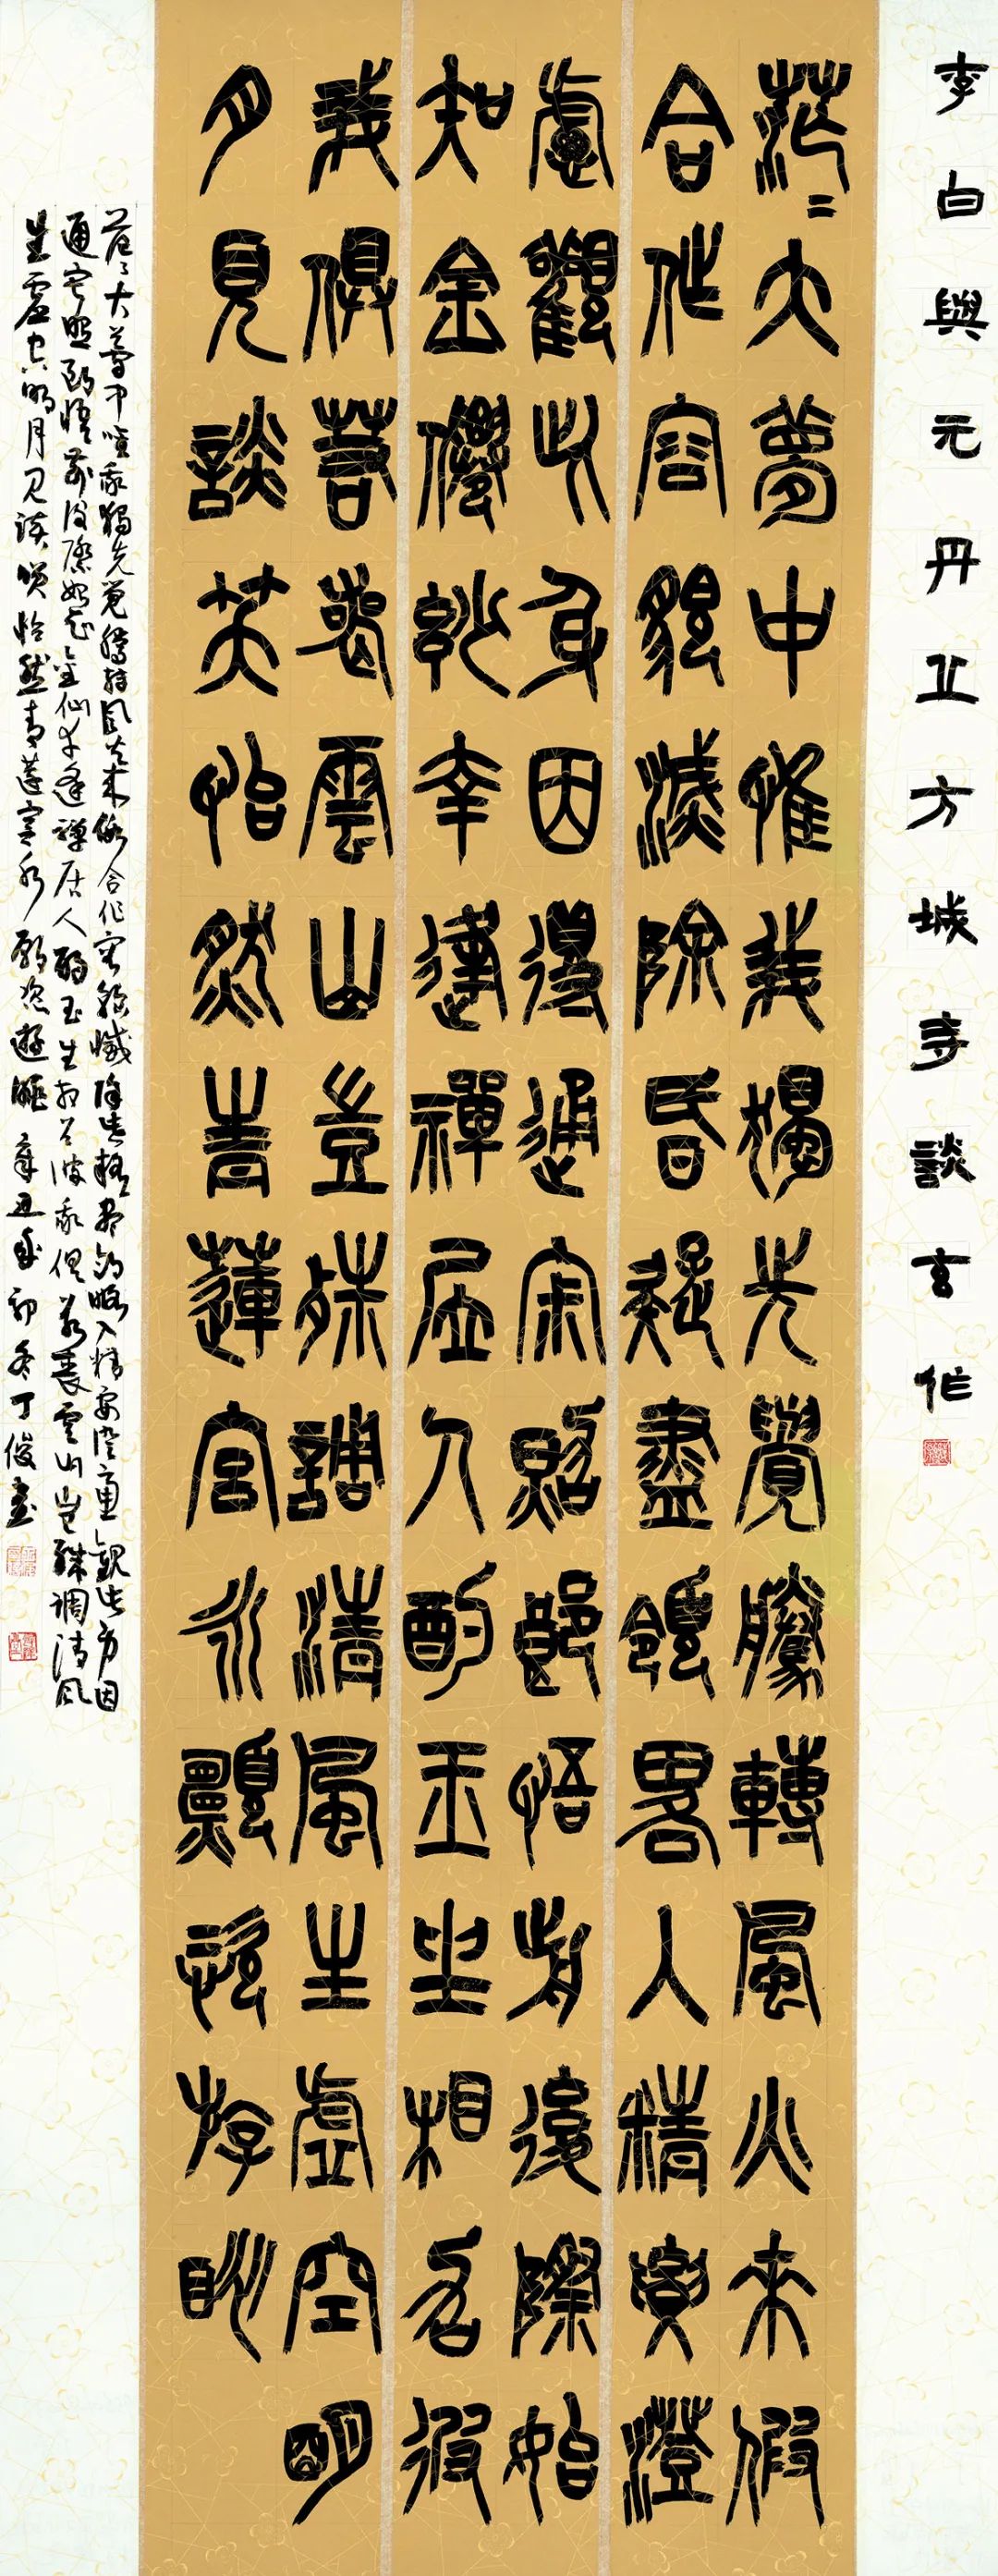 李白與元丹丘方城寺談玄作
茫二大夢中惟我獨先覺騰轉風火來假
合作容貌滅除昏疑盡領略入精要澄
慮觀此身因得通寂照朗悟前後際始
知金僊妙幸逢禪居人酌玉坐相召彼
我俱若喪雲山豈殊調清風生虛空明
月見談笑怡然青蓮宮永願恣遊眺
茫々大夢中唯我獨先覺騰轉風火來假合作容貌滅除昏疑盡領略入精要澄慮觀此身因
通寂照朗悟前後際始知金仙妙幸逢禪居人酌玉坐相召彼我俱若喪雲山豈殊調清風
生虛空明月見談笑怡然青蓮宮永願恣遊眺 辛丑年初冬丁俊書